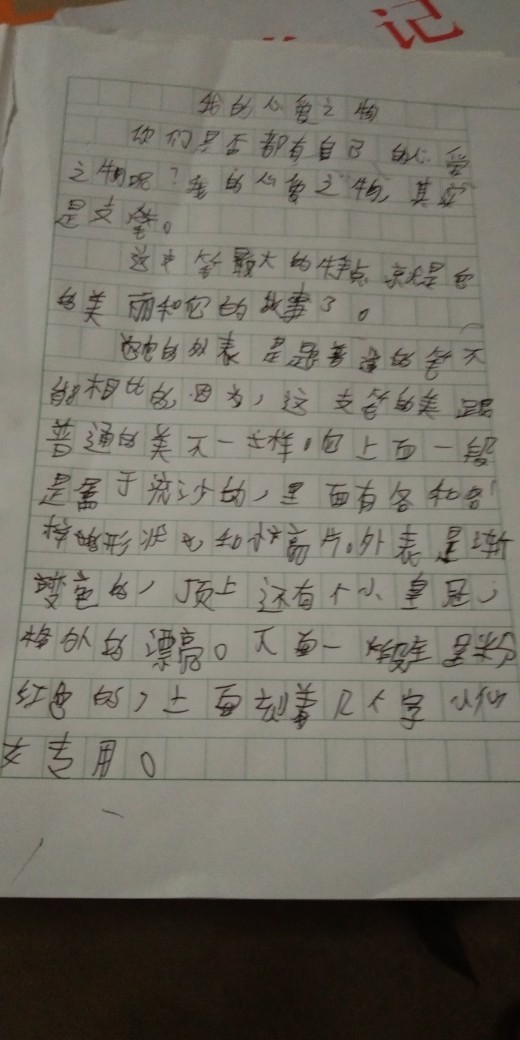 记
我的心爱之物
你们是否都有自己的心爱
之物呢？我的心爱之物，其实
是支笔。
这支笔最大的特点就是它
的美丽和它的故事了。
它的外表是跟普通的笔不
能相比的，因为，这支笔的美跟
普通的美不一样。它上面一段
是属于流沙的，里面有各种各
样的形状和亮片。外表是渐
变色的，顶上还有个小皇冠，
格外的漂亮。下面一段是粉
红色的，上面刻着几个字小仙
女专用。